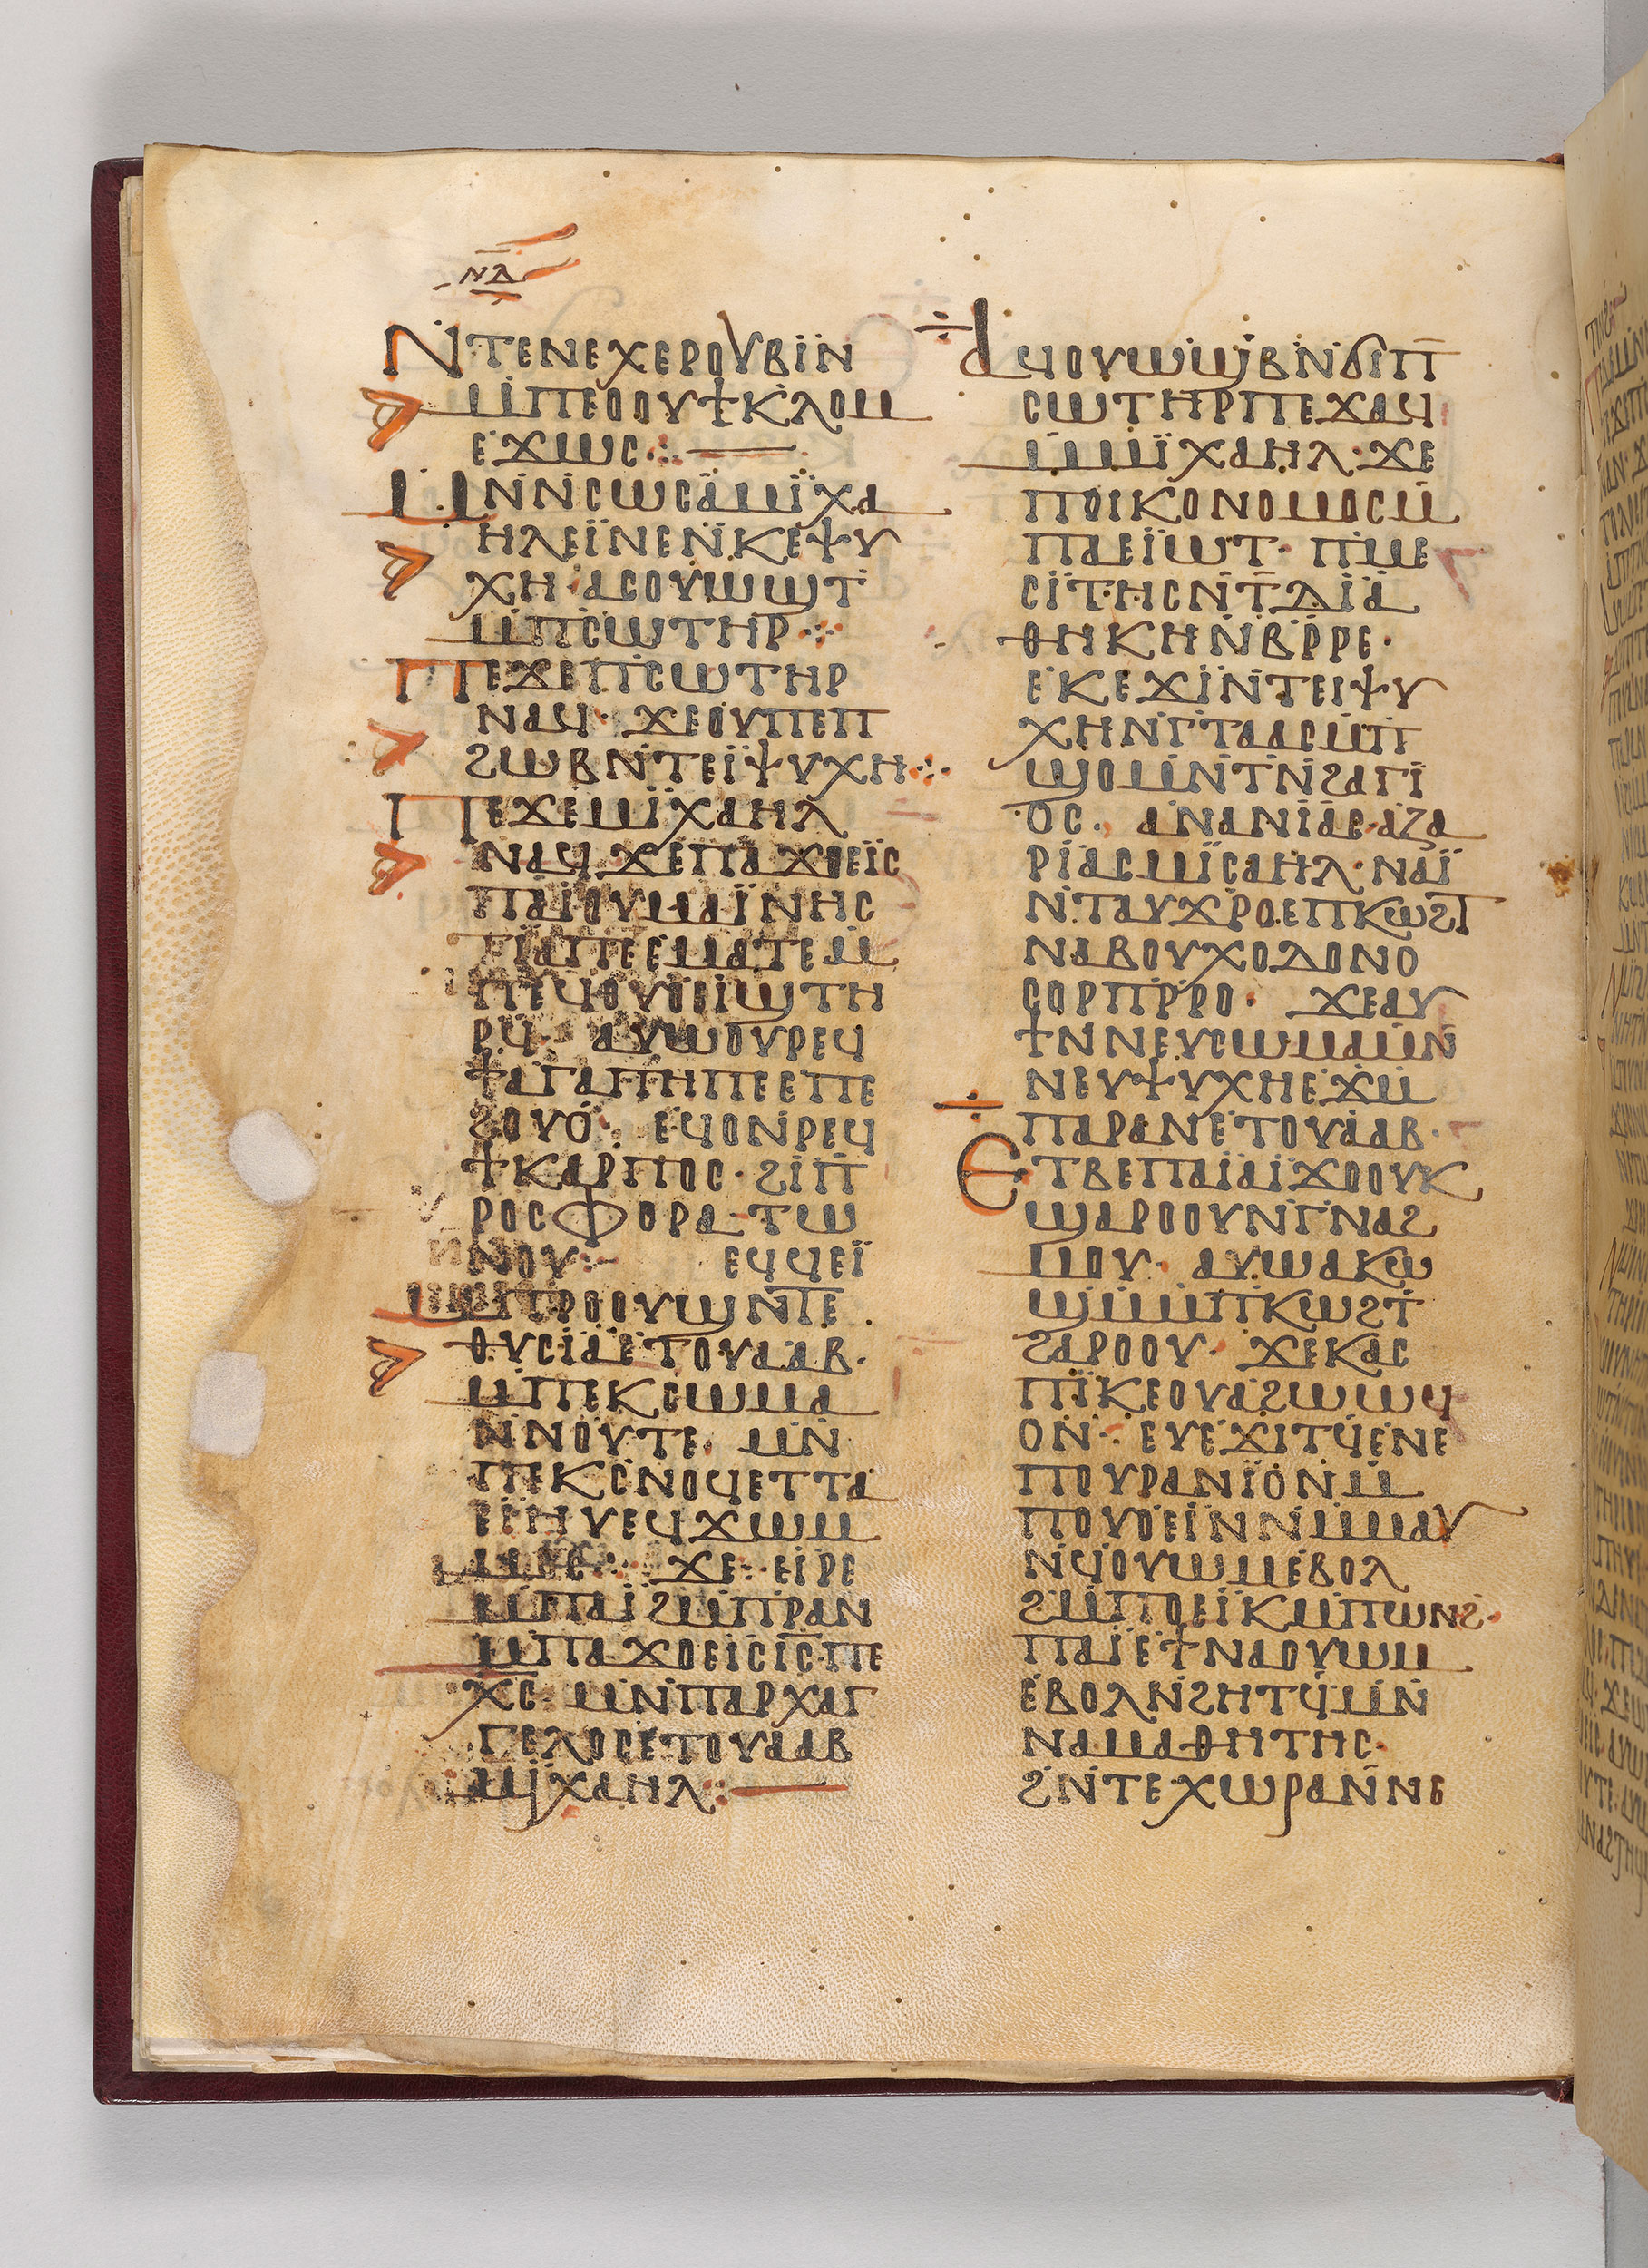 ⲛⲇ
Ⲛⲧⲉⲛⲉⲭⲉⲣⲟⲩⲃⲓ̈ⲛ
ⲙ̇ⲡⲉⲟⲟⲩϯⲕⲗⲟⲙ
ⲉϫⲱⲥ⁘ —
Ⲙⲛ̇ⲛ̇ⲥⲱⲥⲁⲙⲓ̈ⲭⲁ
ⲏⲗⲉⲓ̈ⲛⲉⲛ̇ⲕⲉⲯⲩ
ⲭⲏ ⲁⲥⲟⲩⲱϣⲧ̇
ⲙ̇ⲡ̇ⲥⲱⲧⲏⲣ⁘
Ⲡⲉϫⲉⲡ̇ⲥⲱⲧⲏⲣ
ⲛⲁϥ· ϫⲉⲟⲩⲡⲉⲡ
ϩⲱⲃⲛ̇ⲧⲉⲓ̈ⲯⲩⲭⲏ⁘
Ⲡⲉϫⲉⲙⲓ̈ⲭⲁⲏⲗ
ⲛⲁϥ ϫⲉⲡⲁϫⲟⲉⲓ̈ⲥ
ⲡⲁⲓ̈ⲟⲩⲙⲁⲓ̈ⲛⲏⲥ
ⲧⲓ̈ⲁⲡⲉⲉⲙⲁⲧⲉⲙ̇
ⲡⲉϥⲟⲩⲟⲓ̈ϣⲧⲏ
ⲣϥ̇· ⲁⲩⲱⲟⲩⲣⲉϥ
ϯⲁⲅⲁⲡⲏⲡⲉⲉⲡⲉ
ϩⲟⲩⲟ̇· ⲉϥⲟⲛ̇ⲣⲉϥ
ϯⲕⲁⲣⲡⲟⲥ· ϩⲓⲡ̇
ⲣⲟⲥⲫⲟⲣⲁ· ⲧⲱ
ⲛⲟⲩ⁘ ⲉϥϥⲉⲓ̈
ⲙ̇ⲡⲣⲟⲟⲩϣⲛ̇ⲧⲉ
ⲑⲩⲥⲓ̈ⲁⲉⲧⲟⲩⲁⲁⲃ·
ⲙ̇ⲡⲉⲕⲥⲱⲙⲁ
ⲛ̇ⲛⲟⲩⲧⲉ· ⲙⲛ̇
ⲡⲉⲕⲥ̇ⲛⲟϥⲉⲧⲧⲁ
ⲉⲓ̈ⲏⲩⲉϥϫⲱⲙ
ⲙⲟⲥ⁘ ϫⲉ ⲉⲓⲣⲉ
ⲙ̇ⲡⲁⲓ̈ϩⲙ̇ⲡ̇ⲣⲁⲛ
ⲙ̇ⲡⲁϫⲟⲉⲓⲥⲓ̅ⲥ̅·ⲡⲉ
ⲭ̅ⲥ̅ ⲙⲛ̇ⲡⲁⲣⲭⲁⲅ
ⲅⲉⲗⲟⲥⲉⲧⲟⲩⲁⲁⲃ
ⲙⲓ̈ⲭⲁⲏⲗ⁘ —
Ⲁϥⲟⲩⲱϣⲃⲛ̇ϭⲓⲡ̅
ⲥⲱⲧⲏⲣⲡⲉϫⲁϥ
ⲙ̇ⲙⲓ̈ⲭⲁⲏⲗ· ϫⲉ
ⲡⲟⲓⲕⲟⲛⲟⲙⲟⲥⲙ̇
ⲡⲁⲉⲓ̈ⲱⲧ· ⲡ̇ⲙⲉ
ⲥⲓ̈ⲧⲏⲥⲛ̇ⲧ̇ⲇⲓ̈ⲁ
ⲑⲏⲕⲏⲛ̇ⲃ̇ⲣ̇ⲣⲉ·
ⲉⲕⲉϫⲓ̈ⲛ̇ⲧⲉⲓⲯⲩ
ⲭⲏⲛ̇ⲅ̇ⲧⲁⲁⲥⲙ̇ⲡ̇
ϣⲟⲙⲛ̇ⲧ̇ⲛ̇ϩⲁⲅⲓ̈
ⲟⲥ· ⲁⲛⲁⲛⲓ̈ⲁⲥ·ⲁⲍⲁ
ⲣⲓ̈ⲁⲥⲙⲓ̈ⲥⲁⲏⲗ· ⲛⲁⲓ̈
ⲛ̇ⲧⲁⲩϫⲣⲟⲉⲡⲕⲱϩⲧ
ⲛⲁⲃⲟⲩⲭⲟⲇⲟⲛⲟ
ⲥⲟⲣⲡⲣ̇ⲣⲟ· ϫⲉⲁⲩ
ϯⲛ̇ⲛⲉⲩⲥⲱⲙⲁⲙⲛ̇
ⲛⲉⲩⲯⲩⲭⲏⲉϫⲙ̇
ⲡⲁⲣⲁⲛⲉⲧⲟⲩⲁⲁⲃ·
Ⲉⲧⲃⲉⲡⲁⲓ̈ⲁⲓ̈ϫⲟⲟⲩⲕ
ϣⲁⲣⲟⲟⲩⲛ̇ⲅ̇ⲛⲁϩ
ⲙⲟⲩ· ⲁⲩⲱⲁⲕⲱ
ϣⲙ̇ⲙ̇ⲡⲕⲱϩⲧ̇
ϩⲁⲣⲟⲟⲩ· ϫⲉⲕⲁⲥ
ⲡⲓ̈ⲕⲉⲟⲩⲁϩⲱⲱϥ
ⲟⲛ· ⲉⲩⲉϫⲓⲧϥ̇ⲉⲛⲉ
ⲡⲟⲩⲣⲁⲛⲓ̈ⲟⲛⲙ̇
ⲡⲟⲩⲟⲉⲓ̈ⲛⲛ̇ⲙ̇ⲙⲁⲩ
ⲛ̇ϥ̇ⲟⲩⲱⲙⲉⲃⲟⲗ
ϩⲙ̇ⲡⲟⲉⲓ̈ⲕⲙ̇ⲡⲱⲛϩ·
ⲡⲁⲓ̈ⲉϯⲛⲁⲟⲩⲱⲙ
ⲉⲃⲟⲗⲛ̇ϩⲏⲧϥ̇ⲙⲛ̇
ⲛⲁⲙⲁⲑⲏⲧⲏⲥ·
ϩⲛ̇ⲧⲉⲭⲱⲣⲁⲛ̇ⲛⲉ